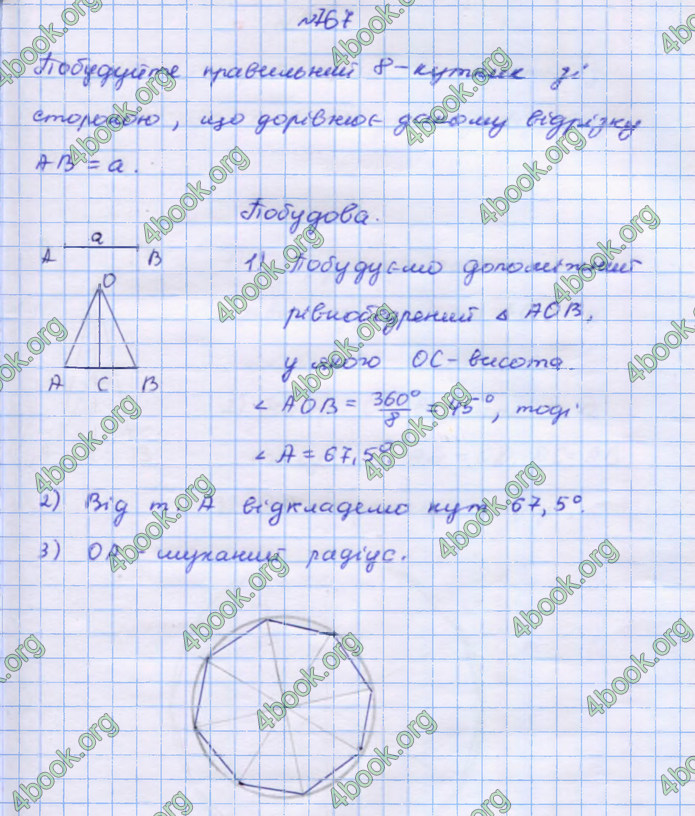 №767
Побудуйте правильний 8-кутник зі
стороною, що дорівнює даному відрізку
AB = a.
Побудова.
a
A B
1) Побудуємо допоміжний
O
рівнобедрений △ AOB,
у якого OC - висота.
A C B
∠ AOB = 360°/8 = 45°, тоді
∠ A = 67,5°
2) Від т. A відкладемо кут 67,5°.
3) OA - шуканий радіус.
4book.org